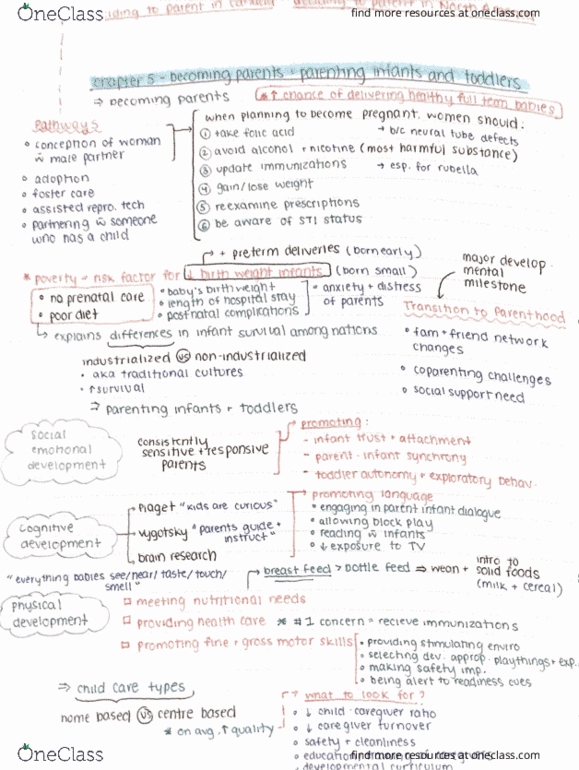 OneClass
find more resources at oneclass.com
to parent in
to parent in North
chapter 5 - becoming parents + parenting infants and toddlers
⇒ becoming parents
* ↑ chance of delivering healthy full term babies
Pathways
• conception of woman
w̄ male partner
• adoption
• foster care
• assisted repro. tech
• partnering w̄ someone
who has a child
when planning to become pregnant, women should:
① take folic acid → b/c neural tube defects
② avoid alcohol + nicotine (most harmful substance)
③ update immunizations → esp. for rubella
④ gain/lose weight
⑤ reexamine prescriptions
⑥ be aware of STI status
↳ + preterm deliveries (born early)
* poverty = risk factor for ↓ birth weight infants (born small)
• no prenatal care
• poor diet
• baby's birth weight
• length of hospital stay
• postnatal complications
• anxiety + distress
of parents
major develop-
mental
milestone
Transition to Parenthood
• fam + friend network
changes
• coparenting challenges
• social support need
↳ explains differences in infant survival among nations
industrialized vs non-industrialized
• aka traditional cultures
• ↑ survival
⇒ parenting infants + toddlers
social
emotional
development
consistently
sensitive + responsive
parents
promoting:
- infant trust + attachment
- parent-infant synchrony
- toddler autonomy + exploratory behav.
cognitive
development
piaget "kids are curious"
vygotsky "parents guide +
instruct"
brain research
promoting language
• engaging in parent infant dialogue
• allowing block play
• reading w̄ infants
• ↓ exposure to TV
"everything babies see/hear/taste/touch/
smell"
breast feed > bottle feed ⇒ wean + intro to
solid foods
(milk + cereal)
physical
development
□ meeting nutritional needs
□ providing health care * #1 concern = recieve immunizations
□ promoting fine + gross motor skills
• providing stimulating enviro
• selecting dev. approp. playthings + exp.
• making safety imp.
• being alert to readiness cues
⇒ child care types
home based vs centre based
* on avg. ↑ quality
what to look for?
• ↓ child-caregiver ratio
• ↓ caregiver turnover
• safety + cleanliness
•
developmental curriculum
OneClass
find more resources at oneclass.com